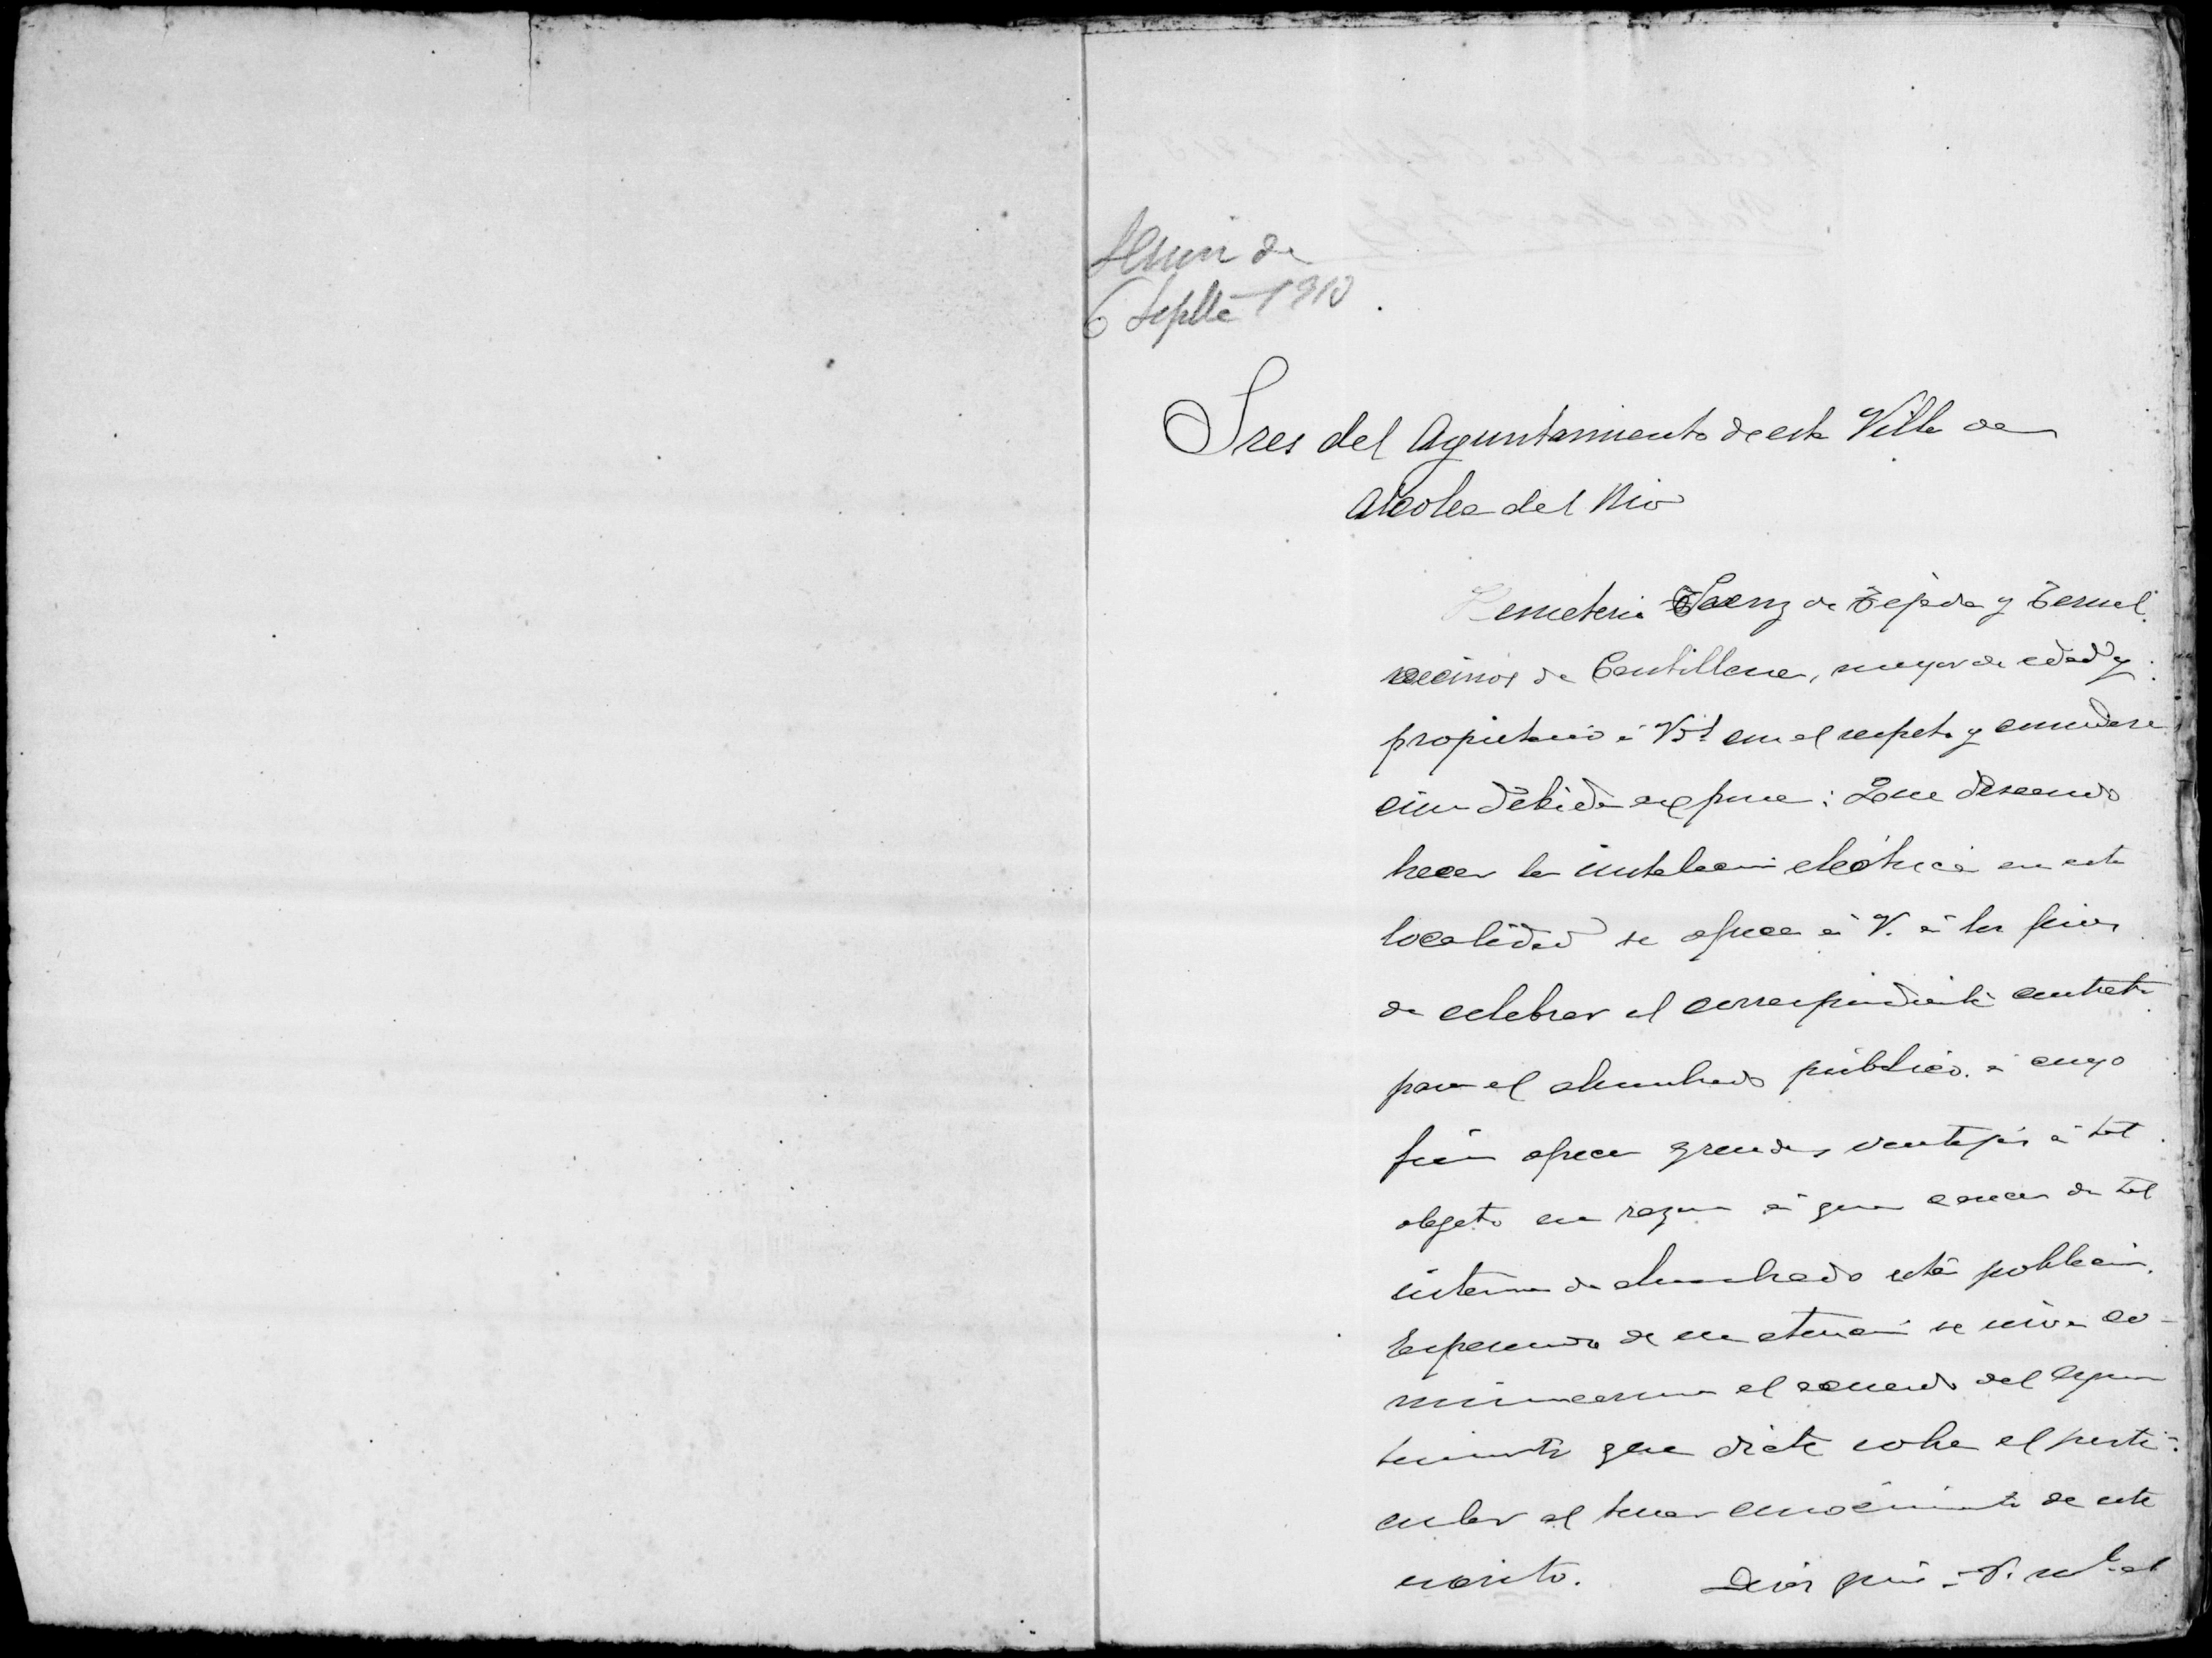 Sesion de
6 Septbe 1910.
Sres del Ayuntamiento de esta Villa de
Alcolea del Rio
Hemeterio Saenz de Tejada y Teruel
vecino de Cantillana, mayor de edad y
propietario á Vs. con el respeto y considera
cion debida expone: Que deseando
hacer la instalacion electrica en esta
localidad se ofrece á V. á los fines
de celebrar el correspondiente contrato
para el alumbrado público. á cuyo
fin ofrece grandes ventajas á tal
objeto en razon á que carece de tal
sistema de alumbrado esta poblacion.
Esperando de su atencion se sirva co-
municarme el acuerdo del Ayun
tamiento que dicte sobre el parti-
cular al tener conocimiento de este
escrito. Dios gue á V. ms. as